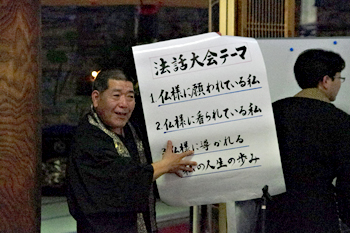 法話大会テーマ
1.仏様に願われている私
2.仏様に看られている私
3.仏様に導かれる
私の人生の歩み